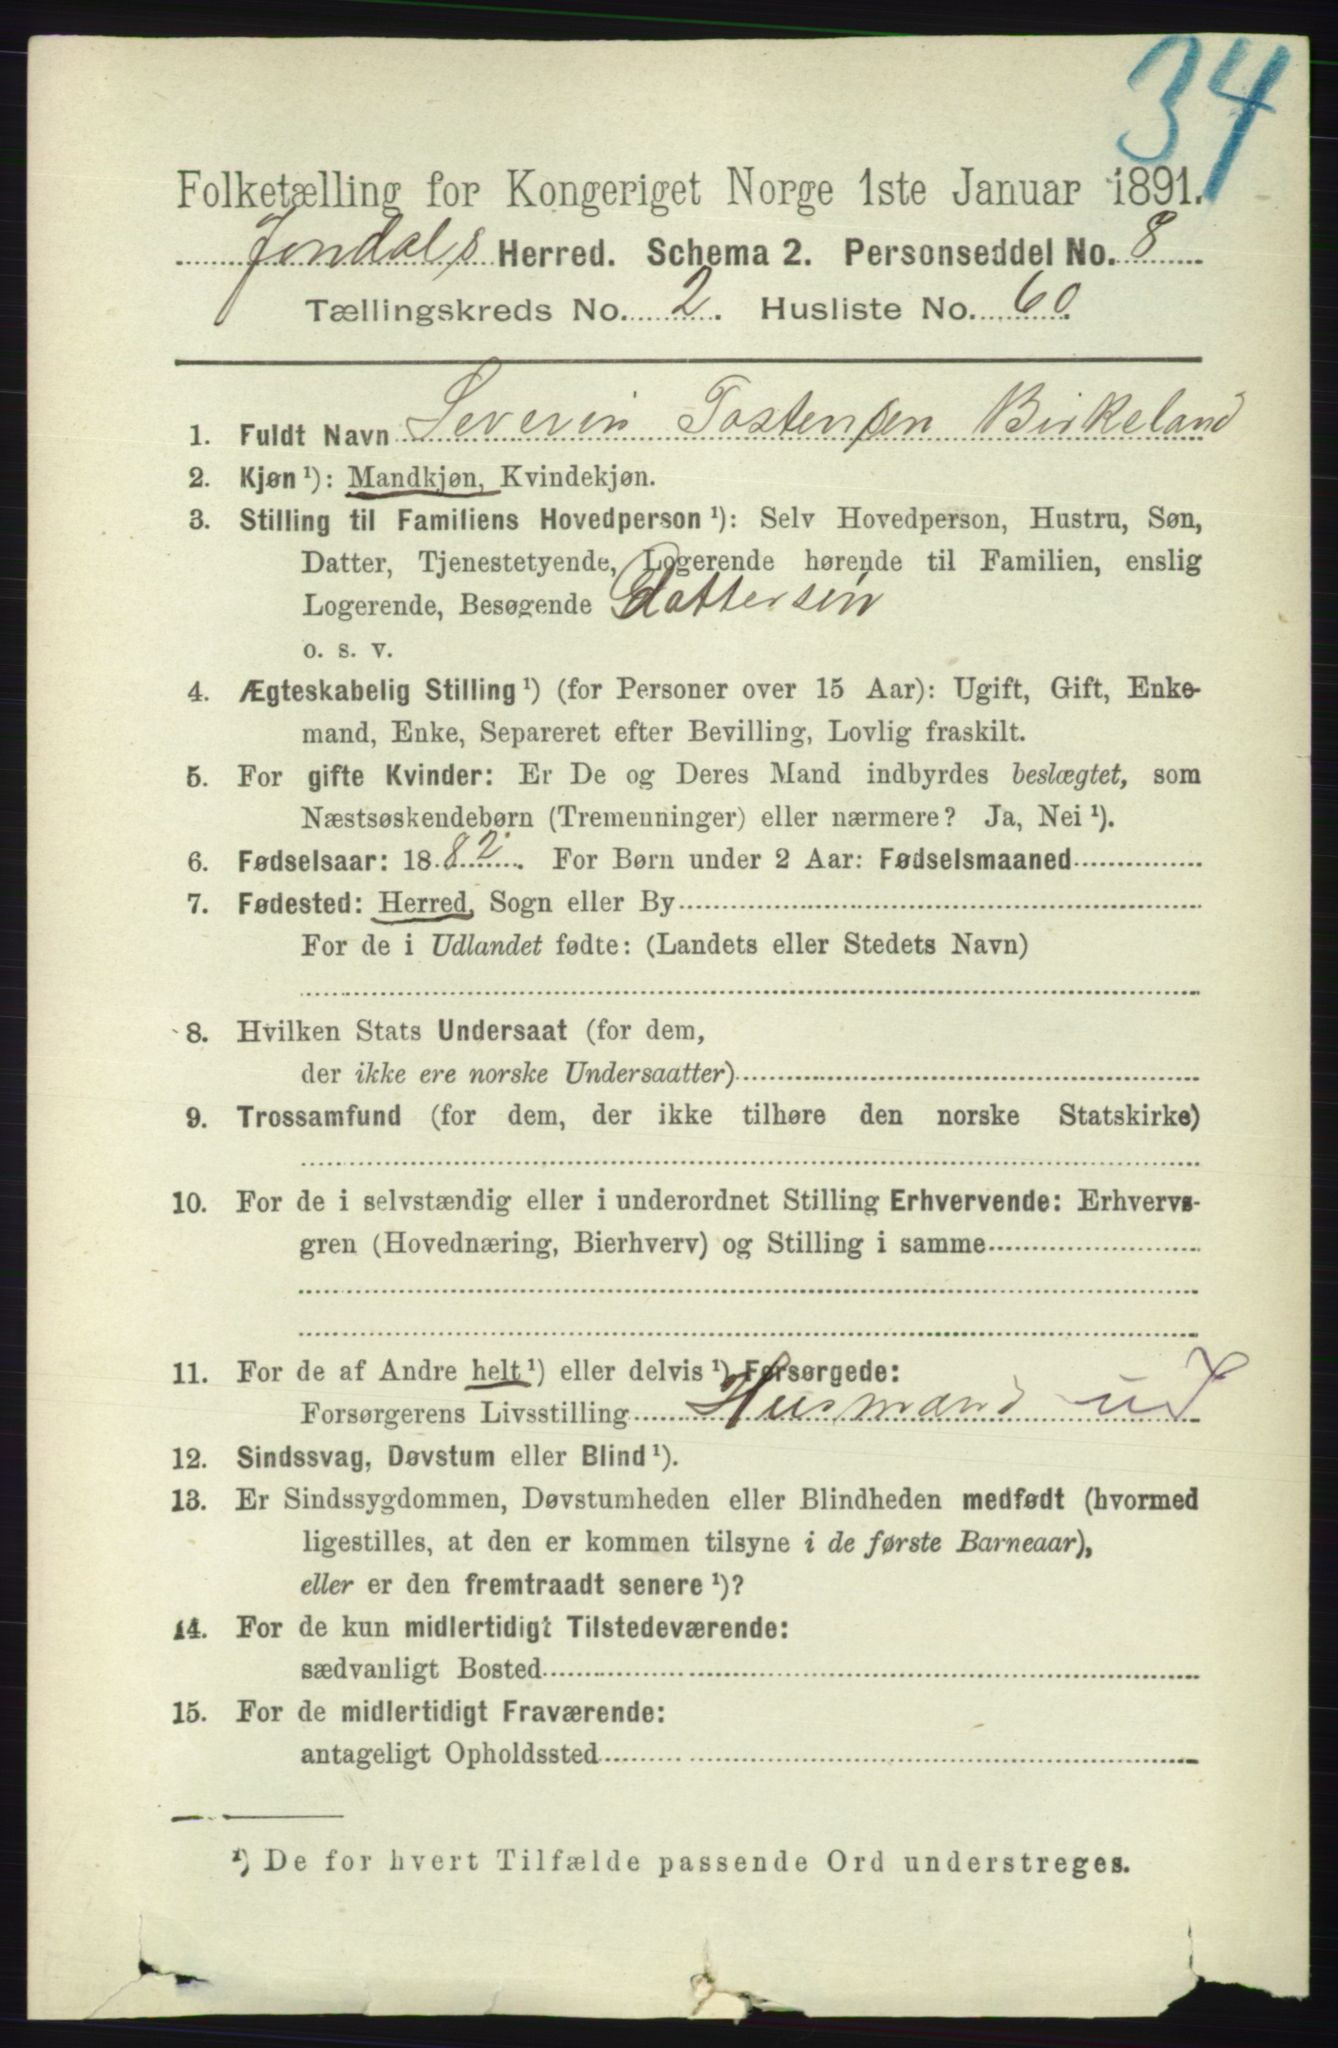 34
Folketælling for Kongeriget Norge 1ste Januar 1891.
Jondals Herred. Schema 2. Personseddel No. 8
Tællingskreds No. 2. Husliste No. 60.
1. Fuldt Navn Severin Tostensen Birkeland
2. Kjøn ¹): Mandkjøn, Kvindekjøn.
3. Stilling til Familiens Hovedperson ¹): Selv Hovedperson, Hustru, Søn,
Datter, Tjenestetyende, Logerende hørende til Familien, enslig
Logerende, Besøgende Dattersøn
o. s. v.
4. Ægteskabelig Stilling ¹) (for Personer over 15 Aar): Ugift, Gift, Enke-
mand, Enke, Separeret efter Bevilling, Lovlig fraskilt.
5. For gifte Kvinder: Er De og Deres Mand indbyrdes beslægtet, som
Næstsøskendebørn (Tremenninger) eller nærmere? Ja, Nei ¹).
6. Fødselsaar: 1882. For Børn under 2 Aar: Fødselsmaaned
7. Fødested: Herred, Sogn eller By
For de i Udlandet fødte: (Landets eller Stedets Navn)
8. Hvilken Stats Undersaat (for dem,
der ikke ere norske Undersaatter)
9. Trossamfund (for dem, der ikke tilhøre den norske Statskirke)
10. For de i selvstændig eller i underordnet Stilling Erhvervende: Erhvervs-
gren (Hovednæring, Bierhverv) og Stilling i samme
11. For de af Andre helt ¹) eller delvis ¹) Forsørgede:
Forsørgerens Livsstilling Husmand
12. Sindssvag, Døvstum eller Blind ¹).
13. Er Sindssygdommen, Døvstumheden eller Blindheden medfødt (hvormed
ligestilles, at den er kommen tilsyne i de første Barneaar),
eller er den fremtraadt senere ¹)?
14. For de kun midlertidigt Tilstedeværende:
sædvanligt Bosted
15. For de midlertidigt Fraværende:
antageligt Opholdssted
¹) De for hvert Tilfælde passende Ord understreges.